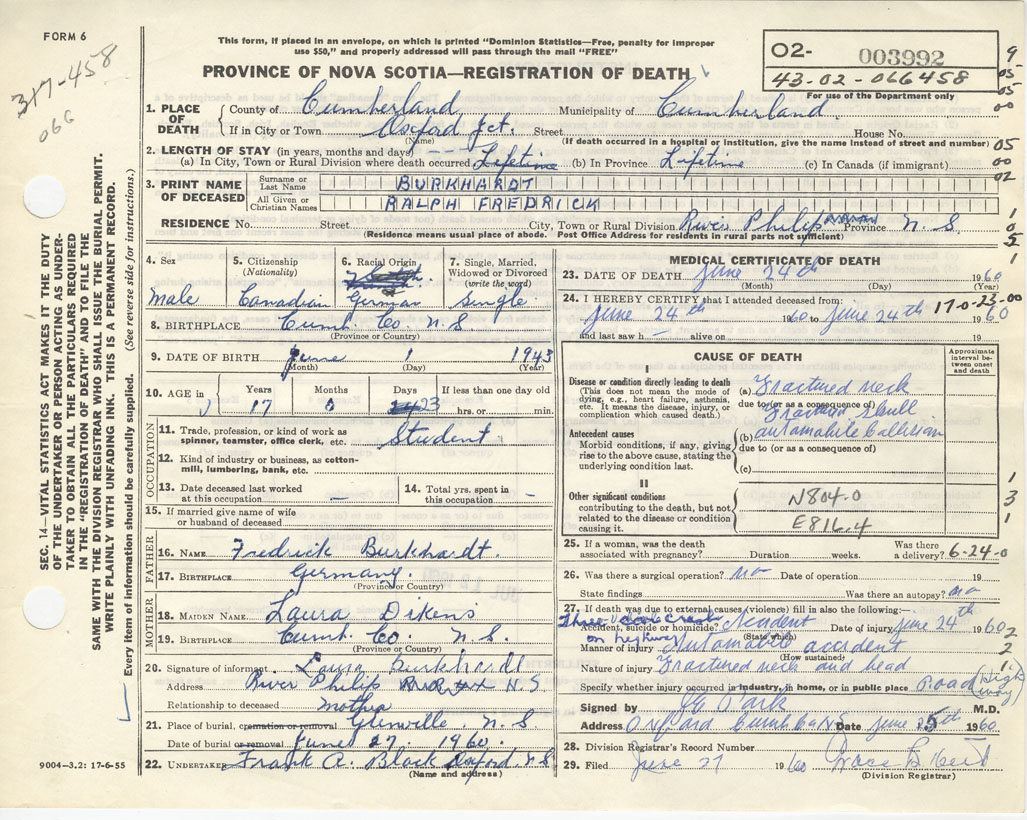 FORM 6
317-458
066
This form, if placed in an envelope, on which is printed "Dominion Statistics—Free, penalty for improper
use $50," and properly addressed will pass through the mail "FREE"
PROVINCE OF NOVA SCOTIA—REGISTRATION OF DEATH
02- 003992
43-02-066458
For use of the Department only
9
05
05
00
05
00
02
1
0
5
1
SEC. 14—VITAL STATISTICS ACT MAKES IT THE DUTY
OF THE UNDERTAKER OR PERSON ACTING AS UNDER-
TAKER TO OBTAIN ALL THE PARTICULARS REQUIRED
IN THE "REGISTRATION OF DEATH" AND TO FILE THE
SAME WITH THE DIVISION REGISTRAR WHO SHALL ISSUE THE BURIAL PERMIT.
WRITE PLAINLY WITH UNFADING INK. THIS IS A PERMANENT RECORD.
Every item of information should be carefully supplied. (See reverse side for instructions.)
1. PLACE OF DEATH
County of Cumberland Municipality of Cumberland
If in City or Town Oxford Jct. Street House No.
(Name) (If death occurred in a hospital or institution, give the name instead of street and number)
2. LENGTH OF STAY (in years, months and days)
(a) In City, Town or Rural Division where death occurred Lifetime (b) In Province Lifetime (c) In Canada (if immigrant)
3. PRINT NAME OF DECEASED
Surname or Last Name BURKHARDT
All Given or Christian Names RALPH FREDRICK
RESIDENCE No. Street City, Town or Rural Division River Philip Province N.S.
(Residence means usual place of abode. Post Office Address for residents in rural parts not sufficient)
4. Sex
male
5. Citizenship (Nationality)
Canadian
6. Racial Origin
German
7. Single, Married, Widowed or Divorced (write the word)
Single
8. BIRTHPLACE Cumb. Co. N.S.
(Province or Country)
9. DATE OF BIRTH June 1 1943
(Month) (Day) (Year)
10. AGE in Years Months Days If less than one day old
17 0 23 hrs. or min.
OCCUPATION
11. Trade, profession, or kind of work as
spinner, teamster, office clerk, etc. Student
12. Kind of industry or business, as cotton-
mill, lumbering, bank, etc.
13. Date deceased last worked
at this occupation —
14. Total yrs. spent in
this occupation —
15. If married give name of wife
or husband of deceased
FATHER
16. NAME Fredrick Burkhardt.
17. BIRTHPLACE Germany.
(Province or Country)
MOTHER
18. MAIDEN NAME Laura Dikens
19. BIRTHPLACE Cumb. Co. N.S.
(Province or Country)
20. Signature of informant Laura Burkhardt
Address River Philip N S
Relationship to deceased mother
21. Place of burial, cremation or removal Glenville, N.S.
Date of burial or removal June 27. 1960.
22. UNDERTAKER Frank A. Black Oxford N S
(Name and address)
9004—3.2: 17-6-55
MEDICAL CERTIFICATE OF DEATH
23. DATE OF DEATH June 24th 1960
(Month) (Day)
24. I HEREBY CERTIFY that I attended deceased from:
17-0-23-00
June 24th 1960 to June 24th 1960
and last saw h — alive on 19
CAUSE OF DEATH
Approximate interval between onset and death
I
Disease or condition directly leading to death
(This does not mean the mode of
dying, e.g., heart failure, asthenia,
etc. It means the disease, injury, or
complication which caused death.)
(a) Fractured neck
due to (or as a consequence of)
Fracture Skull
Antecedent causes
Morbid conditions, if any, giving
rise to the above cause, stating the
underlying condition last.
(b) automobile Collision
due to (or as a consequence of)
(c)
II
Other significant conditions
contributing to the death, but not
related to the disease or condition
causing it.
N804.0
E816.4
1
3
1
25. If a woman, was the death
associated with pregnancy? Duration weeks. Was there a delivery? 6-24-0
26. Was there a surgical operation? no Date of operation 19
State findings Was there an autopsy? no
27. If death was due to external causes (violence) fill in also the following:—
Accident, suicide or homicide? Accident Date of injury June 24th 1960
(State which)
on highway
Manner of injury Automobile accident
(How sustained)
Nature of injury Fractured neck and head
Specify whether injury occurred in industry, in home, or in public place Road (High way)
2
2
1
Signed by M.D.
Address Oxford Cumb Co NS Date June 25th 1960
28. Division Registrar's Record Number
29. Filed June 27 1960
(Division Registrar)